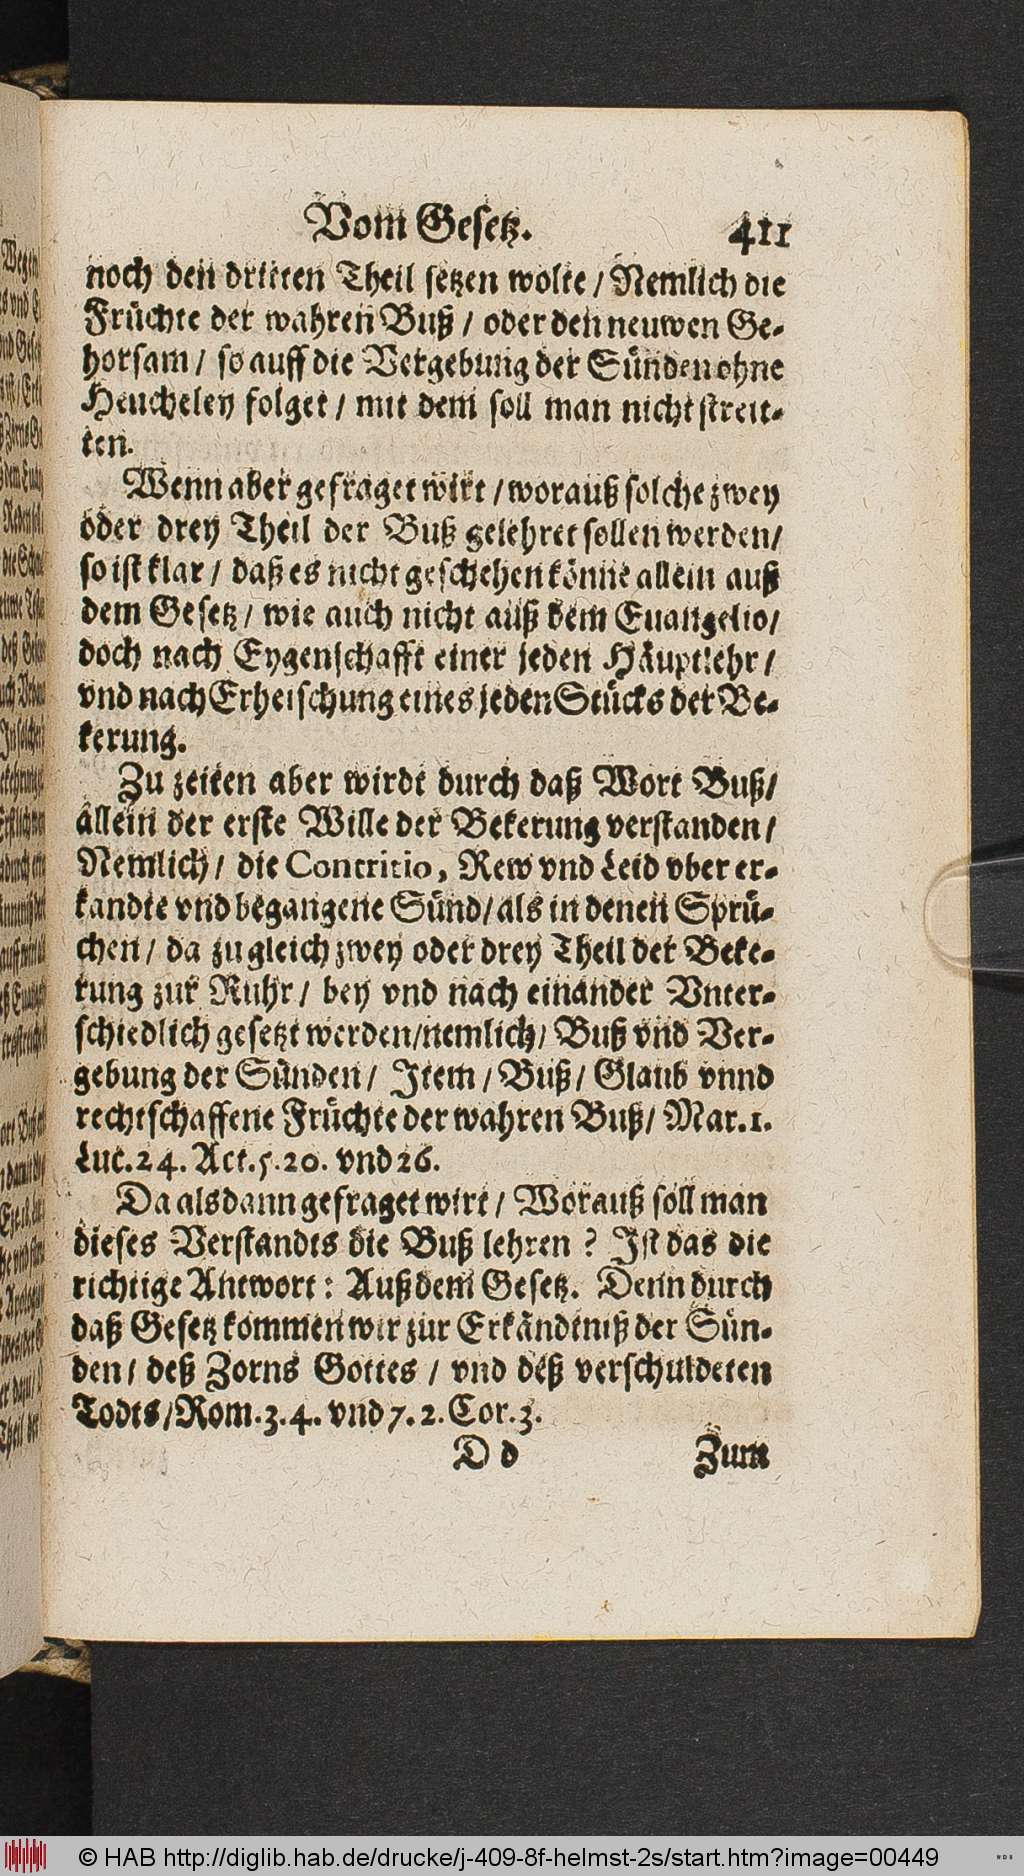 Vom Gesetz. 411
noch den dritten Theil setzen wolte / Nemlich die
Früchte der wahren Buß / oder den neuwen Ge-
horsam / so auff die Vergebung der Sünden ohne
Heucheley folget / mit dem soll man nicht streit-
ten.
Wenn aber gefraget wirt / worauß solche zwey
oder drey Theil der Buß gelehret sollen werden /
so ist klar / daß es nicht geschehen könne allein auß
dem Gesetz / wie auch nicht auß dem Euangelio /
doch nach Eygenschafft einer jeden Häuptlehr /
vnd nach Erheischung eines jeden Stücks der Be-
kerung.
Zu zeiten aber wirdt durch daß Wort Buß /
allein der erste Wille der Bekerung verstanden /
Nemlich / die Contritio, Rew vnd Leid vber er-
kandte vnd begangene Sünd / als in denen Sprü-
chen / da zu gleich zwey oder drey Theil der Beke-
rung zur Ruhr / bey vnd nach einander Vnter-
schiedlich gesetzt werden / nemlich / Buß vnd Ver-
gebung der Sünden / Item / Buß / Glaub vnnd
rechtschaffene Früchte der wahren Buß / Mar. 1.
Luc. 24. Act. 5. 20. vnd 26.
Da alsdann gefraget wirt / Worauß soll man
dieses Verstandts die Buß lehren ? Ist das die
richtige Antwort : Auß dem Gesetz. Denn durch
daß Gesetz kommen wir zur Erkändtniß der Sün-
den / deß Zorns Gottes / vnd deß verschuldeten
Todts / Rom. 3. 4. vnd 7. 2. Cor. 3.
D d Zum
© HAB http://diglib.hab.de/drucke/j-409-8f-helmst-2s/start.htm?image=00449